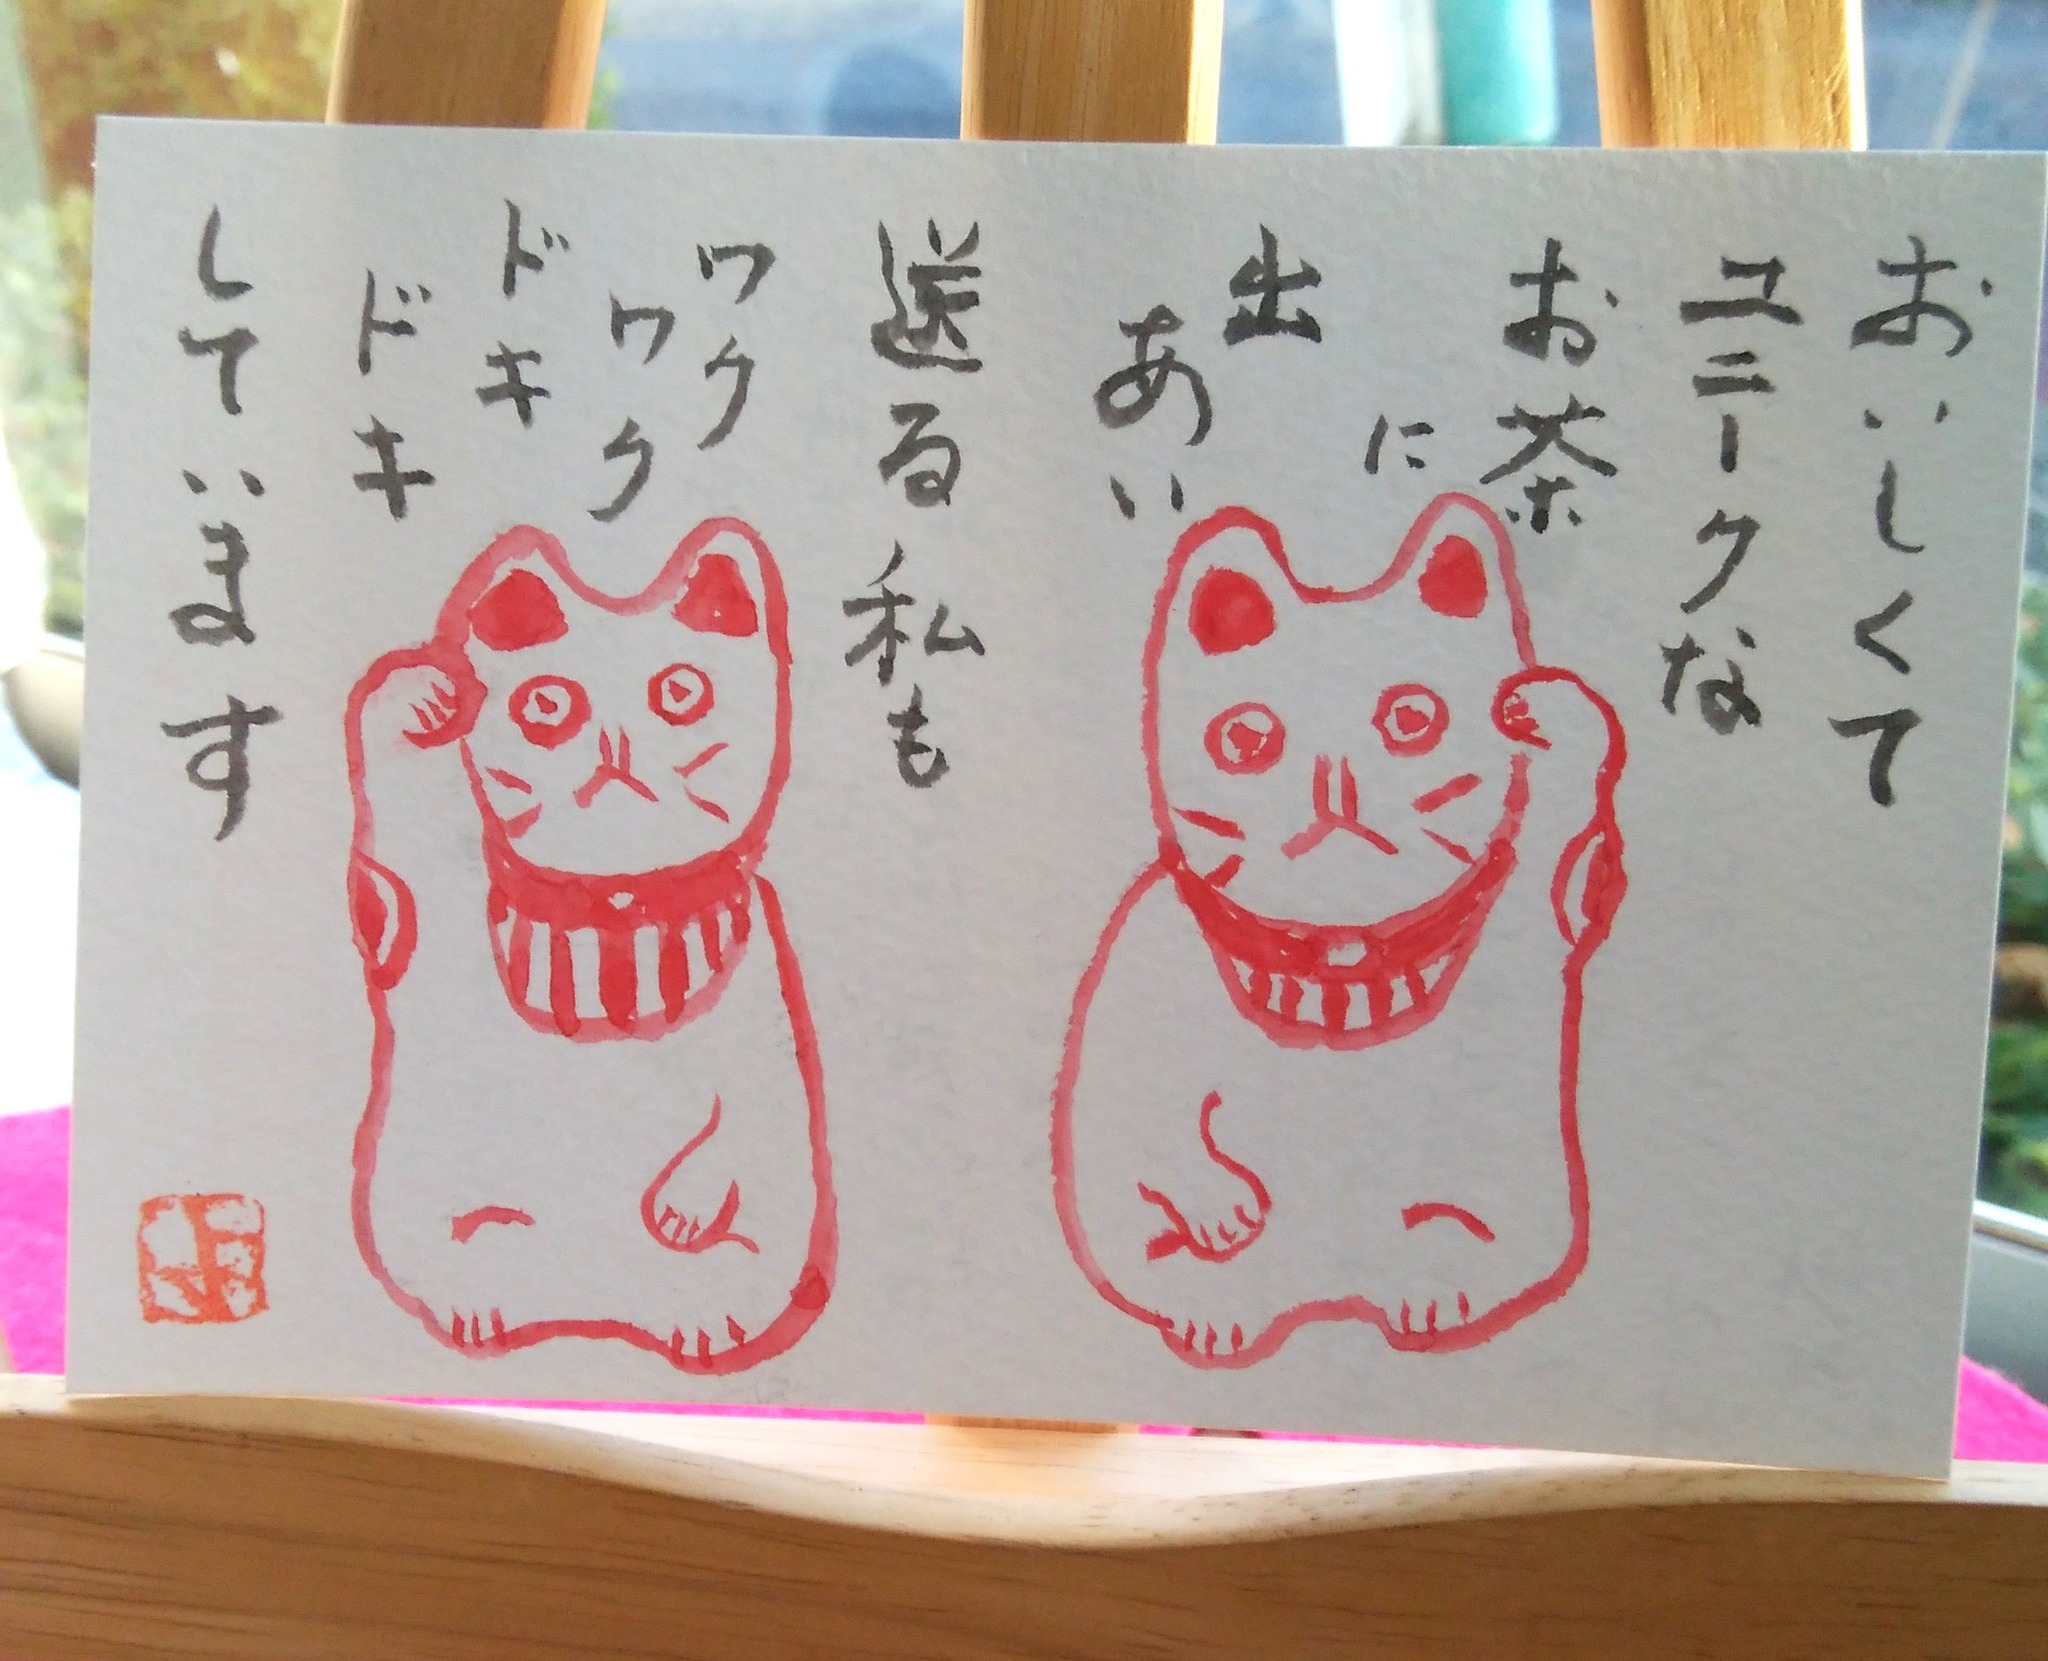 おいしくて
ユニークな
お茶
に
出
あい
送る私も
ワク
ワク
ドキ
ドキ
しています